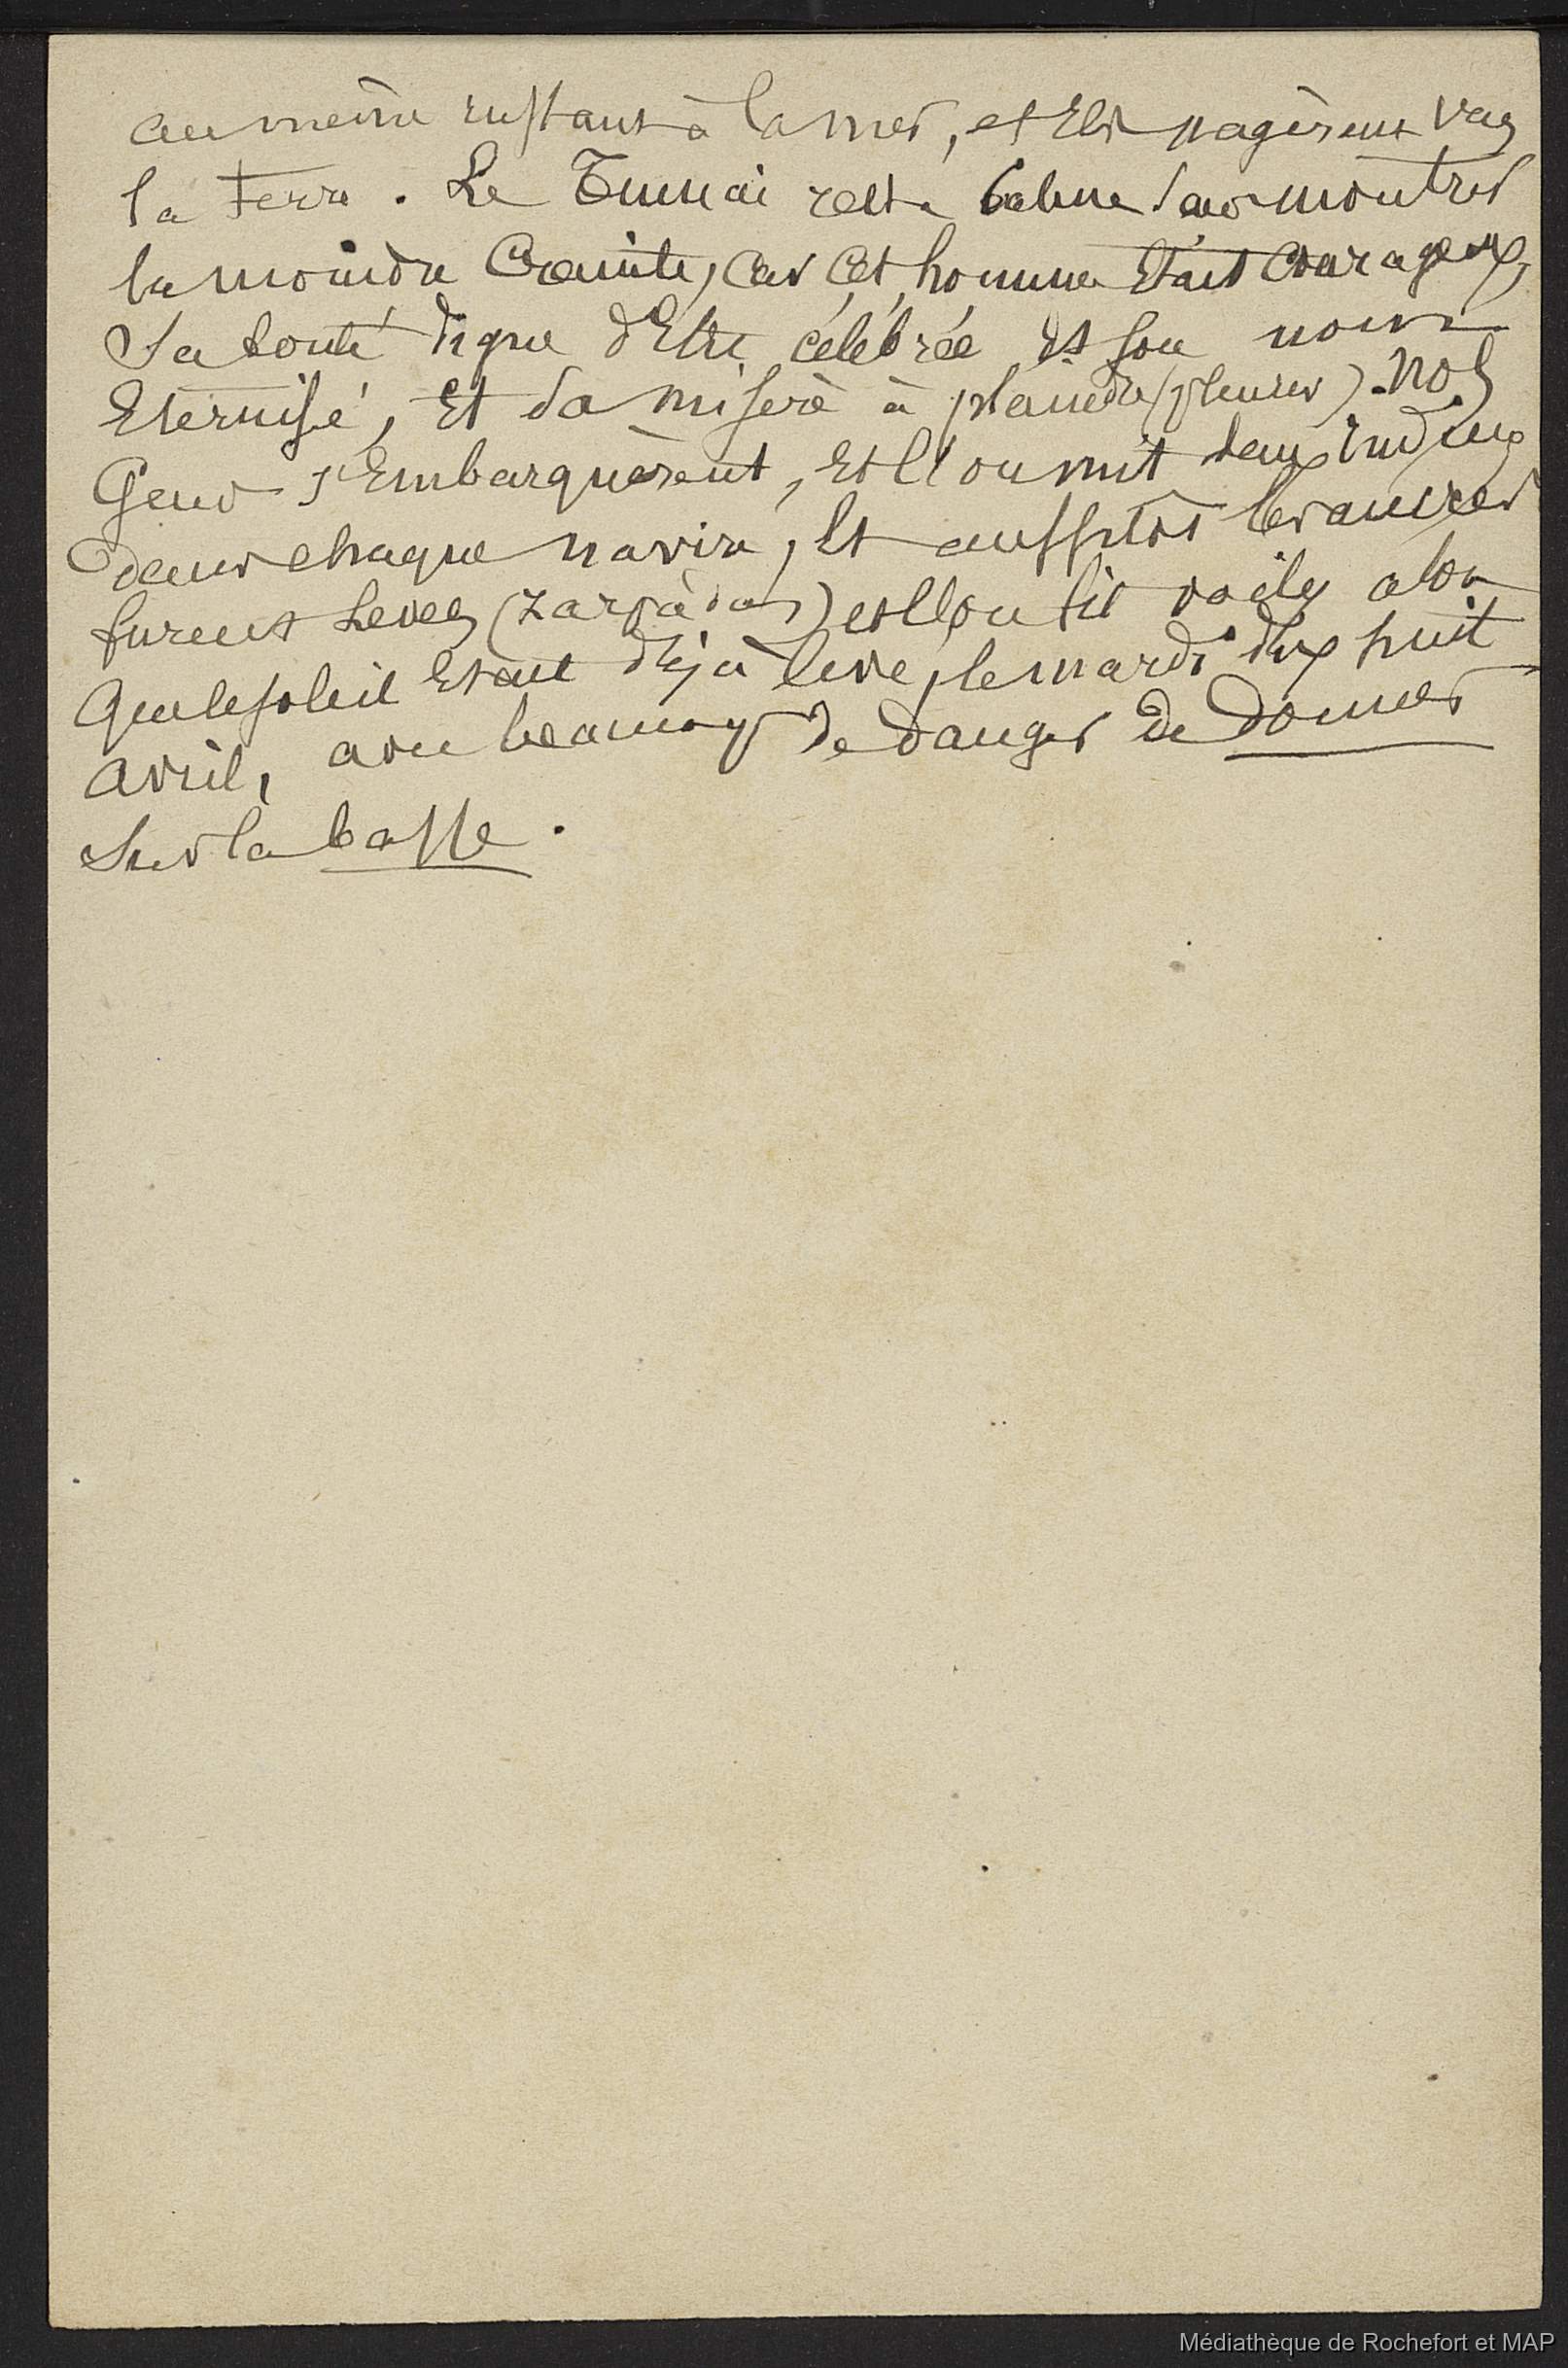 au même instant à la mer, et Elles nagèrent vers
la terre. Le Tumai resta calme sans montrer
la moindre Crainte, car cet homme Etait Courageux,
Sa bonté digne d'Etre célébrée et son nom
Eternisé, Et sa misère à plaindre (pleurer). Nos
Gens s'Embarquèrent, Et l'on mit deux Indiens
dans chaque navire, Et aussitôt les ancres
furent Levées (zarpàdas) et l'on fit voiles alors
que le soleil Etant déjà levé, le mardi dix huit
Avril, avec beaucoup de danger de donner
Sur la basse.
Médiathèque de Rochefort et MAP